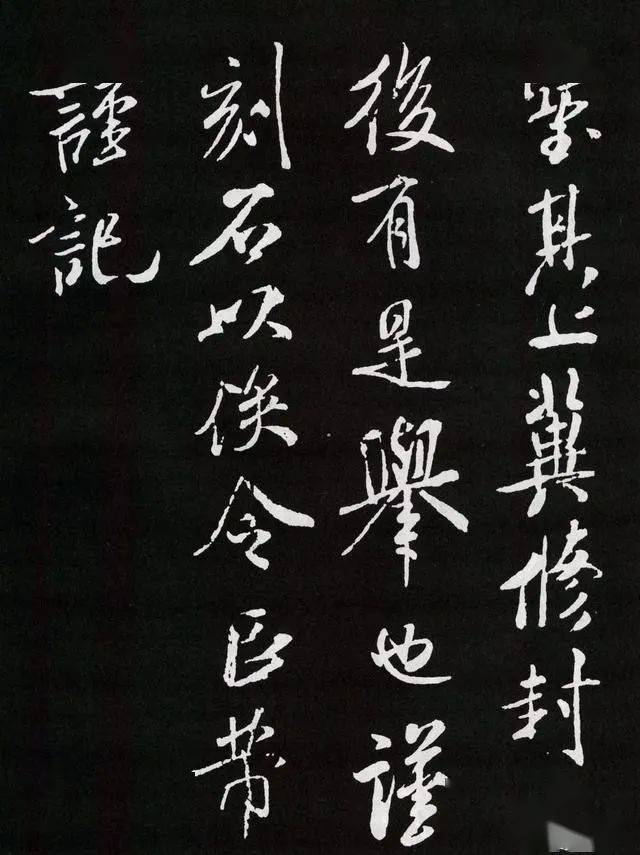 其上冀修封
後有是舉也謹
刻石以俟令臣芾
謹記